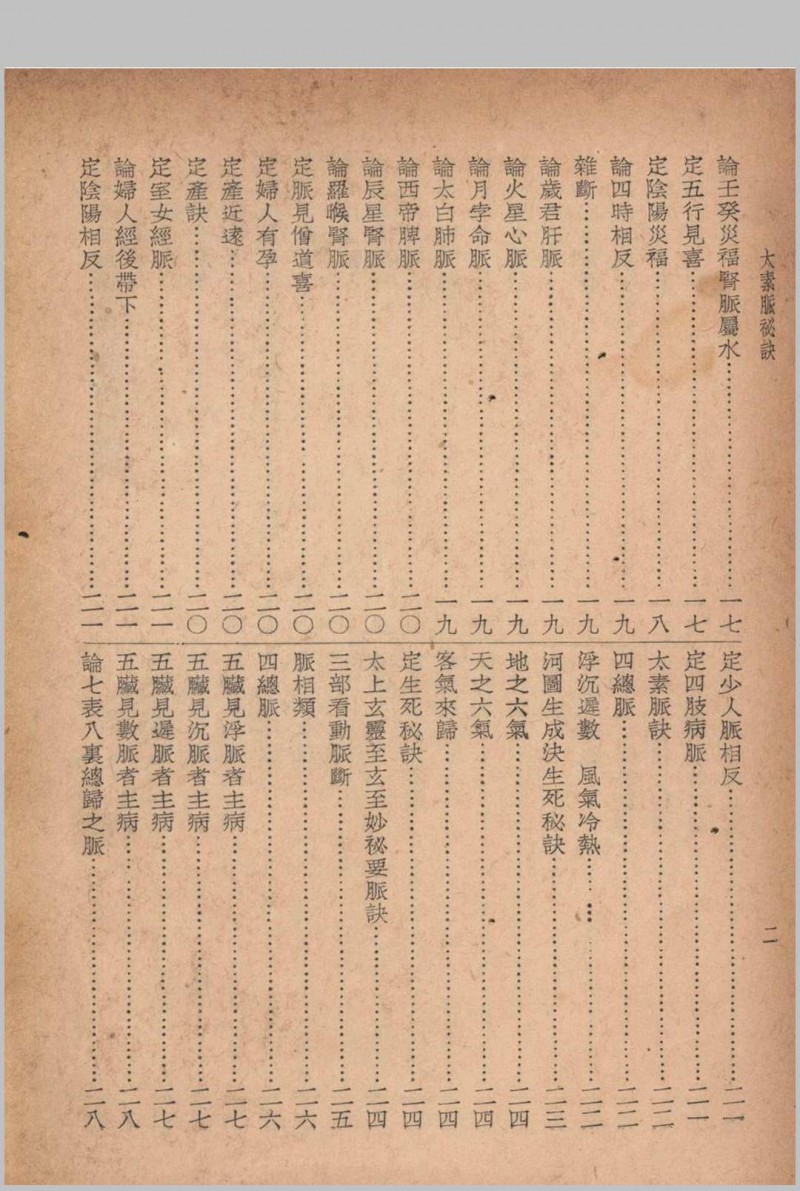 太素脈秘訣
二
論壬癸災福腎脈屬水……一七
定五行見喜……一七
定陰陽災福……一八
論四時相反……一九
雜斷……一九
論歲君肝脈……一九
論火星心脈……一九
論月孛命脈……一九
論太白肺脈……一九
論酉帝脾脈……二〇
論辰星腎脈……二〇
論羅㬋腎脈……二〇
定脈見僧道喜……二〇
定婦人有孕……二〇
定產近遠……二〇
定產訣……二〇
定室女經脈……二一
論婦人經後帶下……二一
定陰陽相反……二一
定少人脈相反……二一
定四肢病脈……二一
太素脈訣……二二
四總脈……二二
浮沉遲數　風氣冷熱……二二
河圖生成決生死秘訣……二三
地之六氣……二四
天之六氣……二四
客氣來歸……二四
定生死秘訣……二四
太上玄靈至玄至妙秘要脈訣……二四
三部看動脈斷……二五
脈相類……二六
四總脈……二六
五臟見浮脈者主病……二七
五臟見沉脈者主病……二七
五臟見遲脈者主病……二七
五臟見數脈者主病……二八
論七表八裏總歸之脈……二八